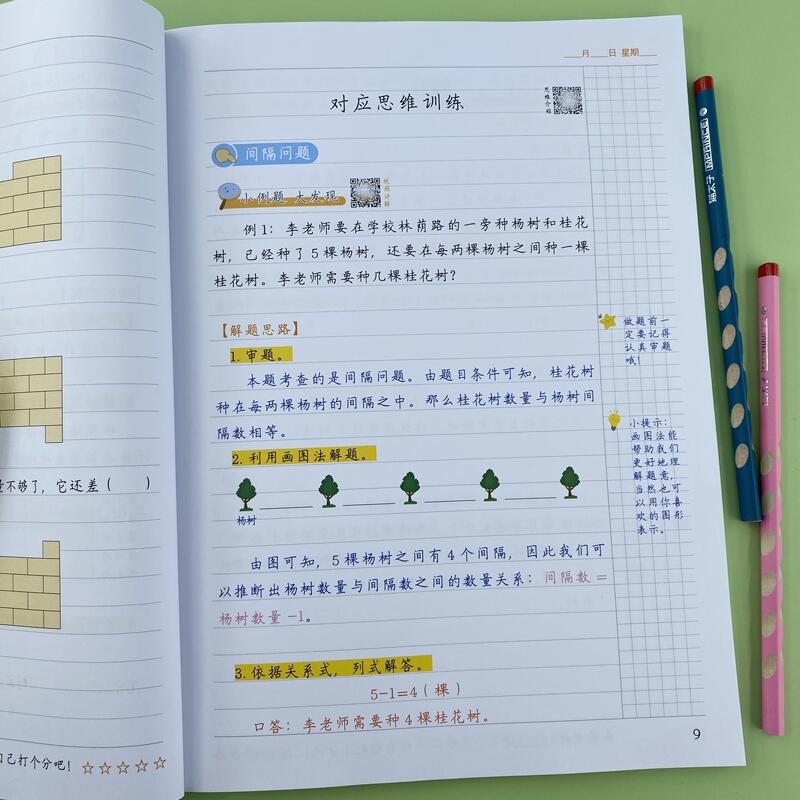 量不够了，它还差（ ）
自己打个分吧！☆☆☆☆☆
____月____日 星期____
对应思维训练
思维介绍
间隔问题
小例题 大发现
视频讲解
例1：李老师要在学校林荫路的一旁种杨树和桂花
树，已经种了5棵杨树，还要在每两棵杨树之间种一棵
桂花树。李老师需要种几棵桂花树？
【解题思路】
1.审题。
本题考查的是间隔问题。由题目条件可知，桂花树
种在每两棵杨树的间隔之中。那么桂花树数量与杨树间
隔数相等。
2.利用画图法解题。
杨树
由图可知，5棵杨树之间有4个间隔，因此我们可
以推断出杨树数量与间隔数之间的数量关系：间隔数=
杨树数量-1。
3.依据关系式，列式解答。
5-1=4（棵）
口答：李老师需要种4棵桂花树。
做题前一
定要记得
认真审题
哦！
小提示：
画图法能
帮助我们
更好地理
解题意，
当然也可
以用你喜
欢的图形
表示。
9